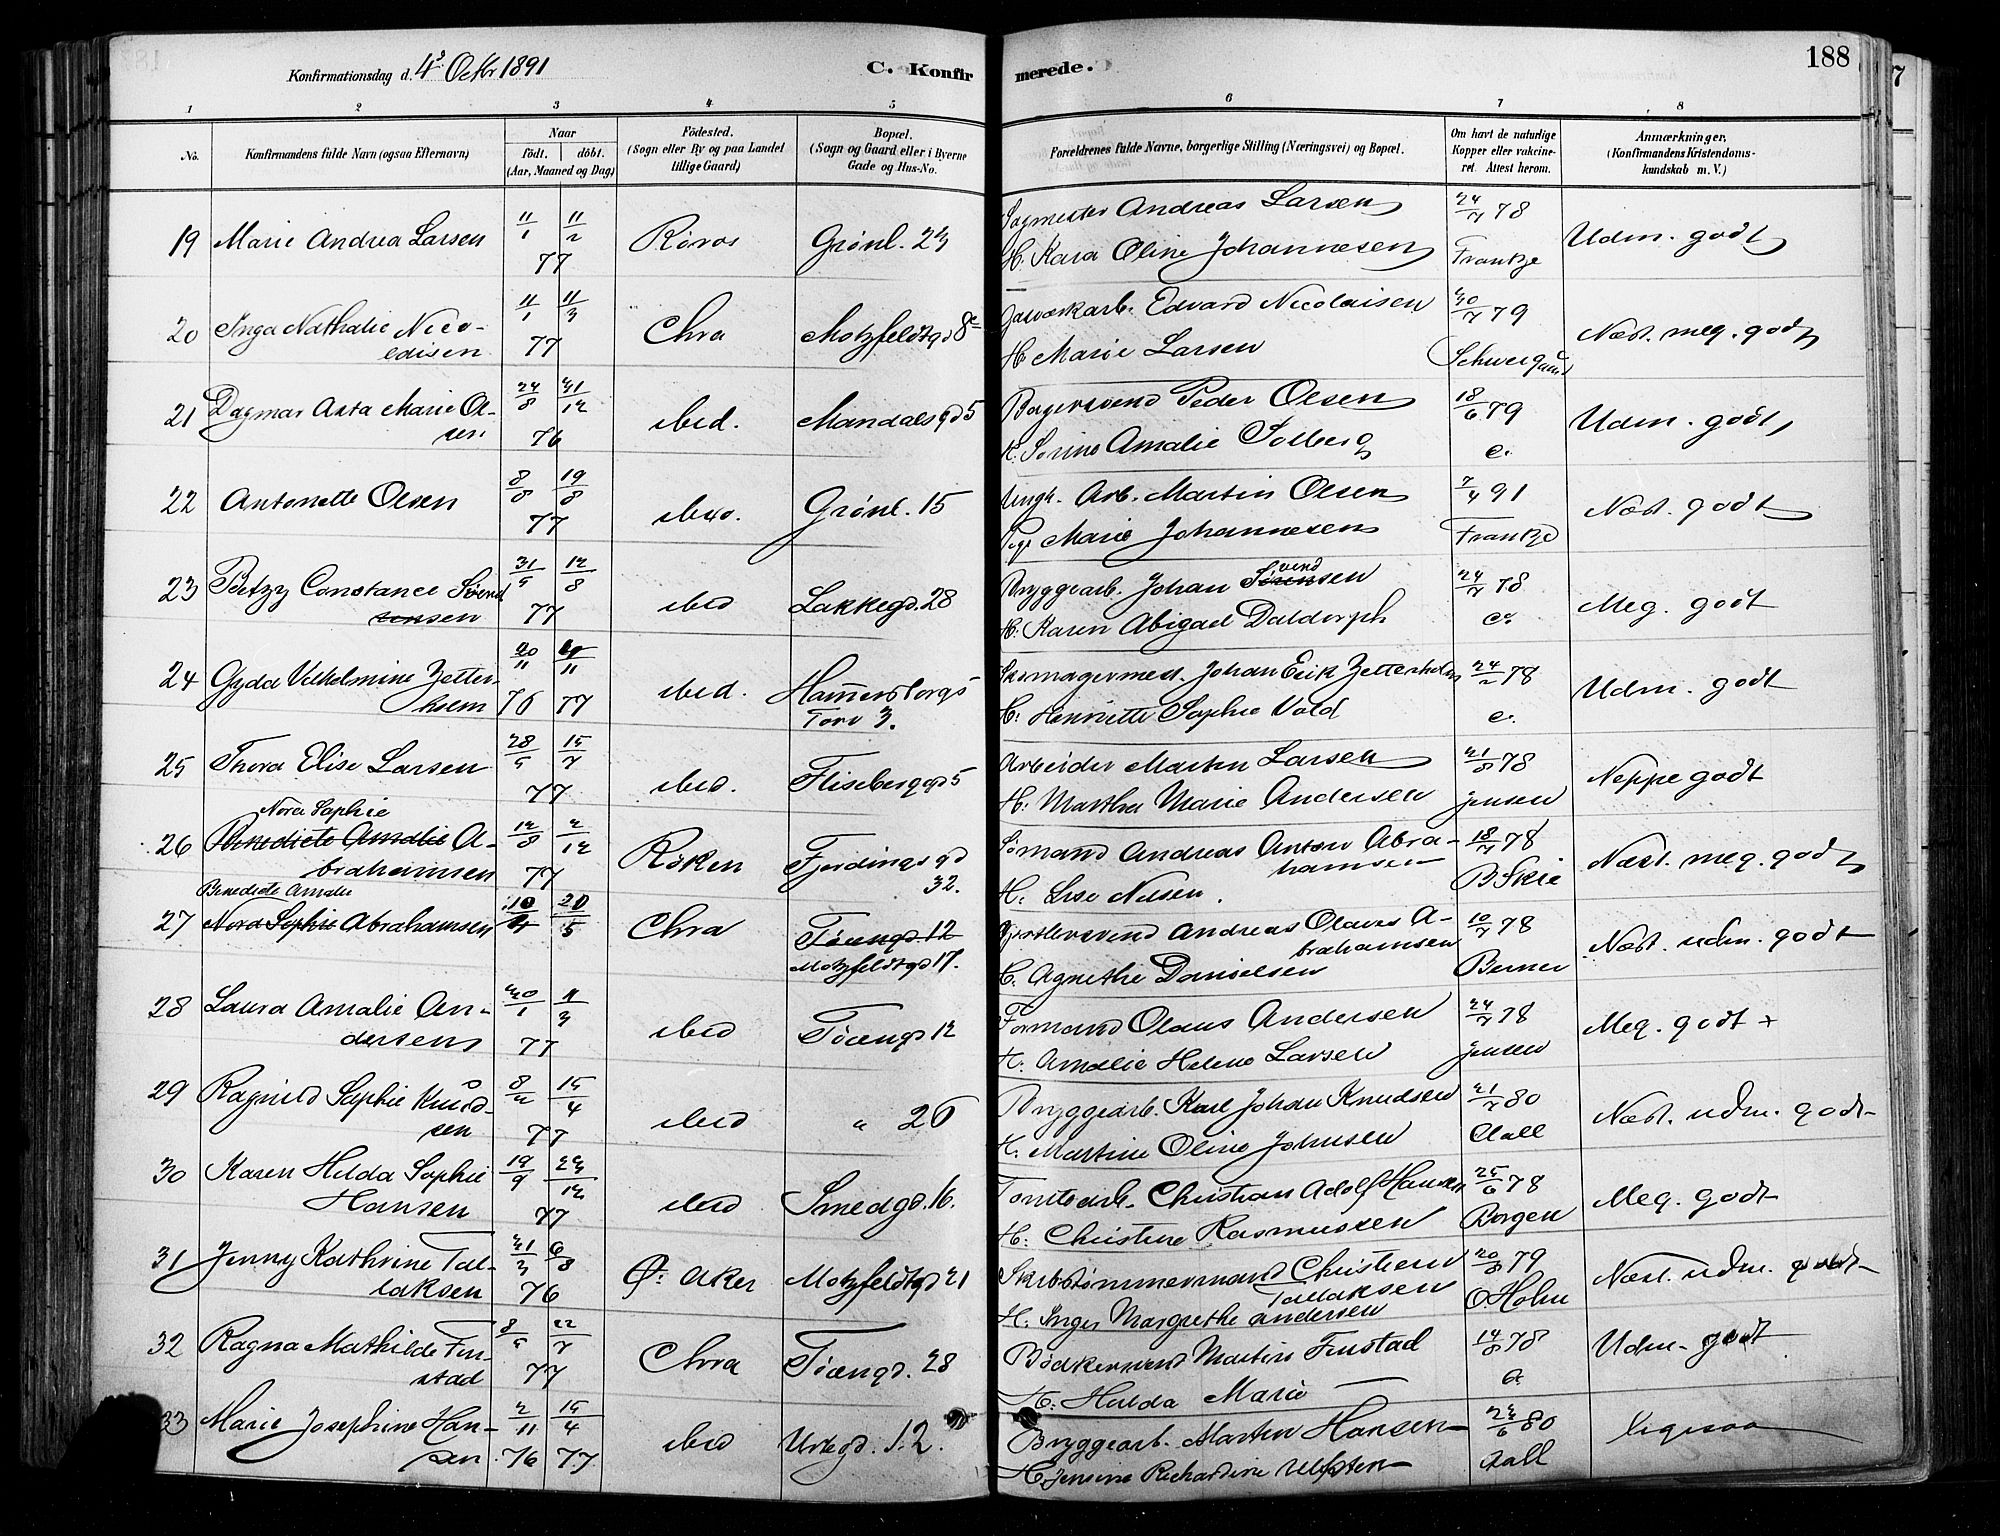 Konfirmationsdag d. 4de Octbr 1891
C. Konfirmerede.
188
1 2 3 4 5 6 7 8
No.
Konfirmandens fulde Navn (ogsaa Efternavn)
Naar
født. døbt.
(Aar, Maaned og Dag)
Fødested.
(Sogn eller By og paa Landet
tillige Gaard)
Bopæl.
(Sogn og Gaard eller i Byerne
Gade og Hus-No.
Forældrenes fulde Navne, borgerlige Stilling (Næringsvei) og Bopæl.
Om havt de naturlige
Kopper eller vakcine-
ret. Attest herom.
Anmærkninger.
(Konfirmandens Kristendoms-
kundskab m. V.)
19 Marie Andrea Larsen 11/1 11/2 77 Røros Grønl. 23 Sagmester Andreas Larsen 24/7 78 Udm. godt
H. Kara Oline Johannesen Frantze
20 Inga Nathalie Nico- 11/1 11/3 77 Chra Motzfeldtgd 8c Gasværkarb. Edvard Nicolaisen 30/7 79 Næst. meg. godt
laisen H. Marie Larsen Schwergaard
21 Dagmar Asta Marie Ol- 24/8 31/12 76 ibid. Mandals gd 5 Bagersvend Peder Olsen 18/6 79 Udm. godt
sen H. Sorine Amalie Solberg c.
22 Antonette Olsen 8/8 19/8 77 ibid. Grønl. 15 Ungk. Arb. Martin Olsen 7/4 91 Næst. godt
Pige Marie Johannesen Frantze
23 Betzy Constance Svend 31/5 12/8 77 ibid Lakkegd. 28 Bryggearb. Johan Svendsen 24/7 78 Meg. godt
sen H. Karen Abigael Daldorph c.
24 Gyda Vilhelmine Zetter- 20/11 76 77 ibid. Hammersborgs Skomagermest. Johan Erik Zetterholm 24/2 78 Udm. godt
holm Torv 3. H. Henriette Sophie Vold c.
25 Thora Elise Larsen 28/5 15/7 77 ibid. Fliseberggd 5 Arbeider Martin Larsen 21/8 78 Neppe godt
H. Marthea Marie Andersen Jensen
Nora Sophie
26 Benedicte Amalie A- 12/8 2/12 77 Røken Fjerdings gd Sømand Andreas Anton Abra- 18/7 78 Næst. meg. godt
brahamsen 32. hamsen
H. Lise Nilsen. B Skie
Benedicte Amalie
27 Nora Sophie Abrahamsen 10/4 20/5 Chra Tøiengd. 12 Gjørtlersvend Andreas Olaves A- 10/7 78 Næst. udm. godt
Motzfeldtgd 17. brahamsen
H. Agnethe Danielsen Berner
28 Laura Amalie An- 30/1 77 ibid Tøiengd 12 Formand Olaus Andersen 24/7 78 Meg. godt +
dersen H. Amalie Helene Larsen Jensen
29 Ragnild Sophie Knud- 8/2 15/4 77 ibid " 26 Bryggearb. Karl Johan Knudsen 21/7 80 Næst. udm. godt
sen H. Martine Oline Johnsen Aall
30 Karen Hilda Sophie 19/9 23/12 77 ibid Smedgd. 16. Tomtearb. Christian Adolf Hansen 25/6 78 Meg. godt
Hansen H. Christine Rasmussen Borgen
31 Jenny Kathrine Tal- 31/3 6/8 76 Ø. Aker Motzfeldtgd 21 Skibstømmermand Christian 20/8 79 Næst. udm. godt
laksen Tallaksen
H. Inger Margrethe Andersen O. Holm
32 Ragna Mathilde Fin- 8/5 22/7 77 Chra Tøiengd. 28 Bødkersvend Martin Finstad 14/8 78 Udm. godt
stad H. Hulda Marie —
33 Marie Josephine Han- 2/11 15/4 76 77 ibid Urtegd. 12. Bryggearb. Martin Hansen 23/6 80 ligesaa
sen H. Jensine Richardine Ulfsten Aall